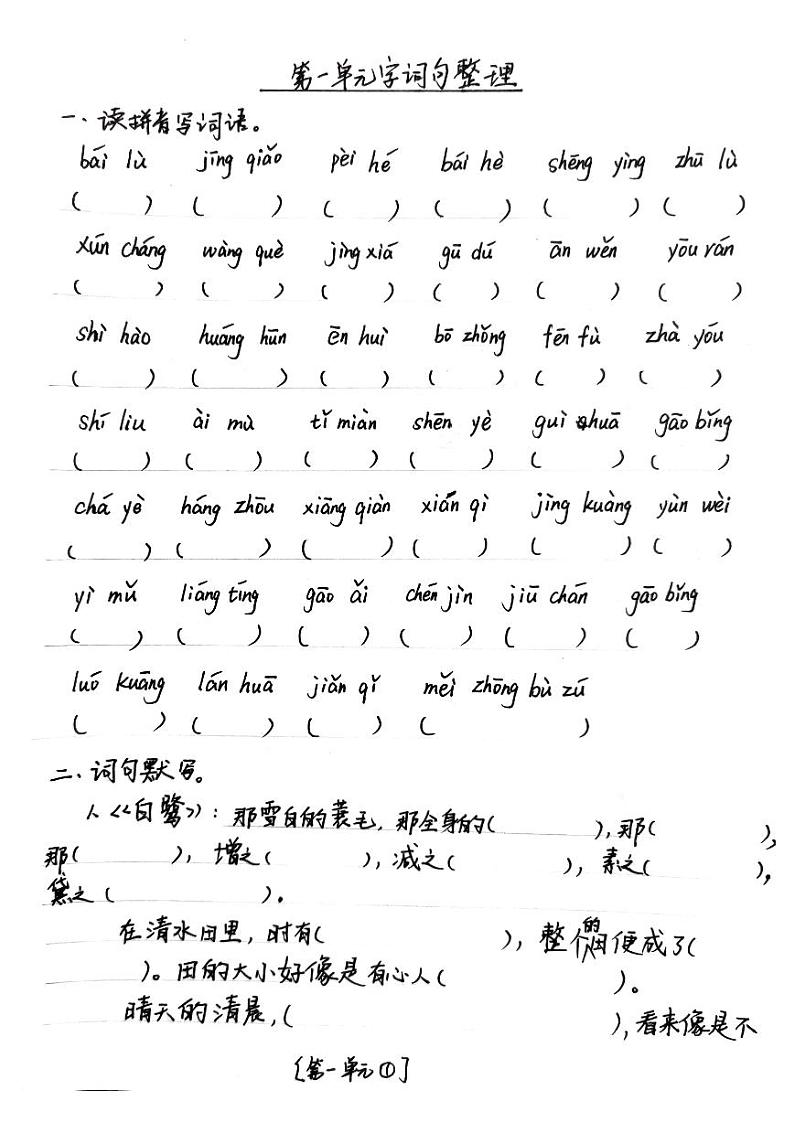 第一单元字词句整理
一、读拼音写词语。
bái lù jīng qiǎo pèi hé bái hè shēng yìng zhū lù
( ) ( ) ( ) ( ) ( ) ( )
xún cháng wàng què jìng xiá gū dú ān wěn yōu rán
( ) ( ) ( ) ( ) ( ) ( )
shì hào huáng hūn ēn huì bō zhǒng fēn fù zhà yóu
( ) ( ) ( ) ( ) ( ) ( )
shí liu ài mù tǐ miàn shēn yè guì huā gāo bǐng
( ) ( ) ( ) ( ) ( ) ( )
chá yè háng zhōu xiāng qiàn xián qì jìng kuàng yùn wèi
( ) ( ) ( ) ( ) ( ) ( )
yì mǔ liáng tíng gāo ǎi chén jìn jiū chán gāo bǐng
( ) ( ) ( ) ( ) ( ) ( )
luó kuāng lán huā jiǎn qǐ měi zhōng bù zú
( ) ( ) ( ) ( )
二、词句默写。
1、《白鹭》:那雪白的蓑毛,那全身的( ),那( ),
那( ),增之( ),减之( ),素之( ),
黛之( )。
在清水田里,时有( ),整个的田便成了(
)。田的大小好像是有心人( )。
晴天的清晨,( ),看来像是不
[第一单元①]